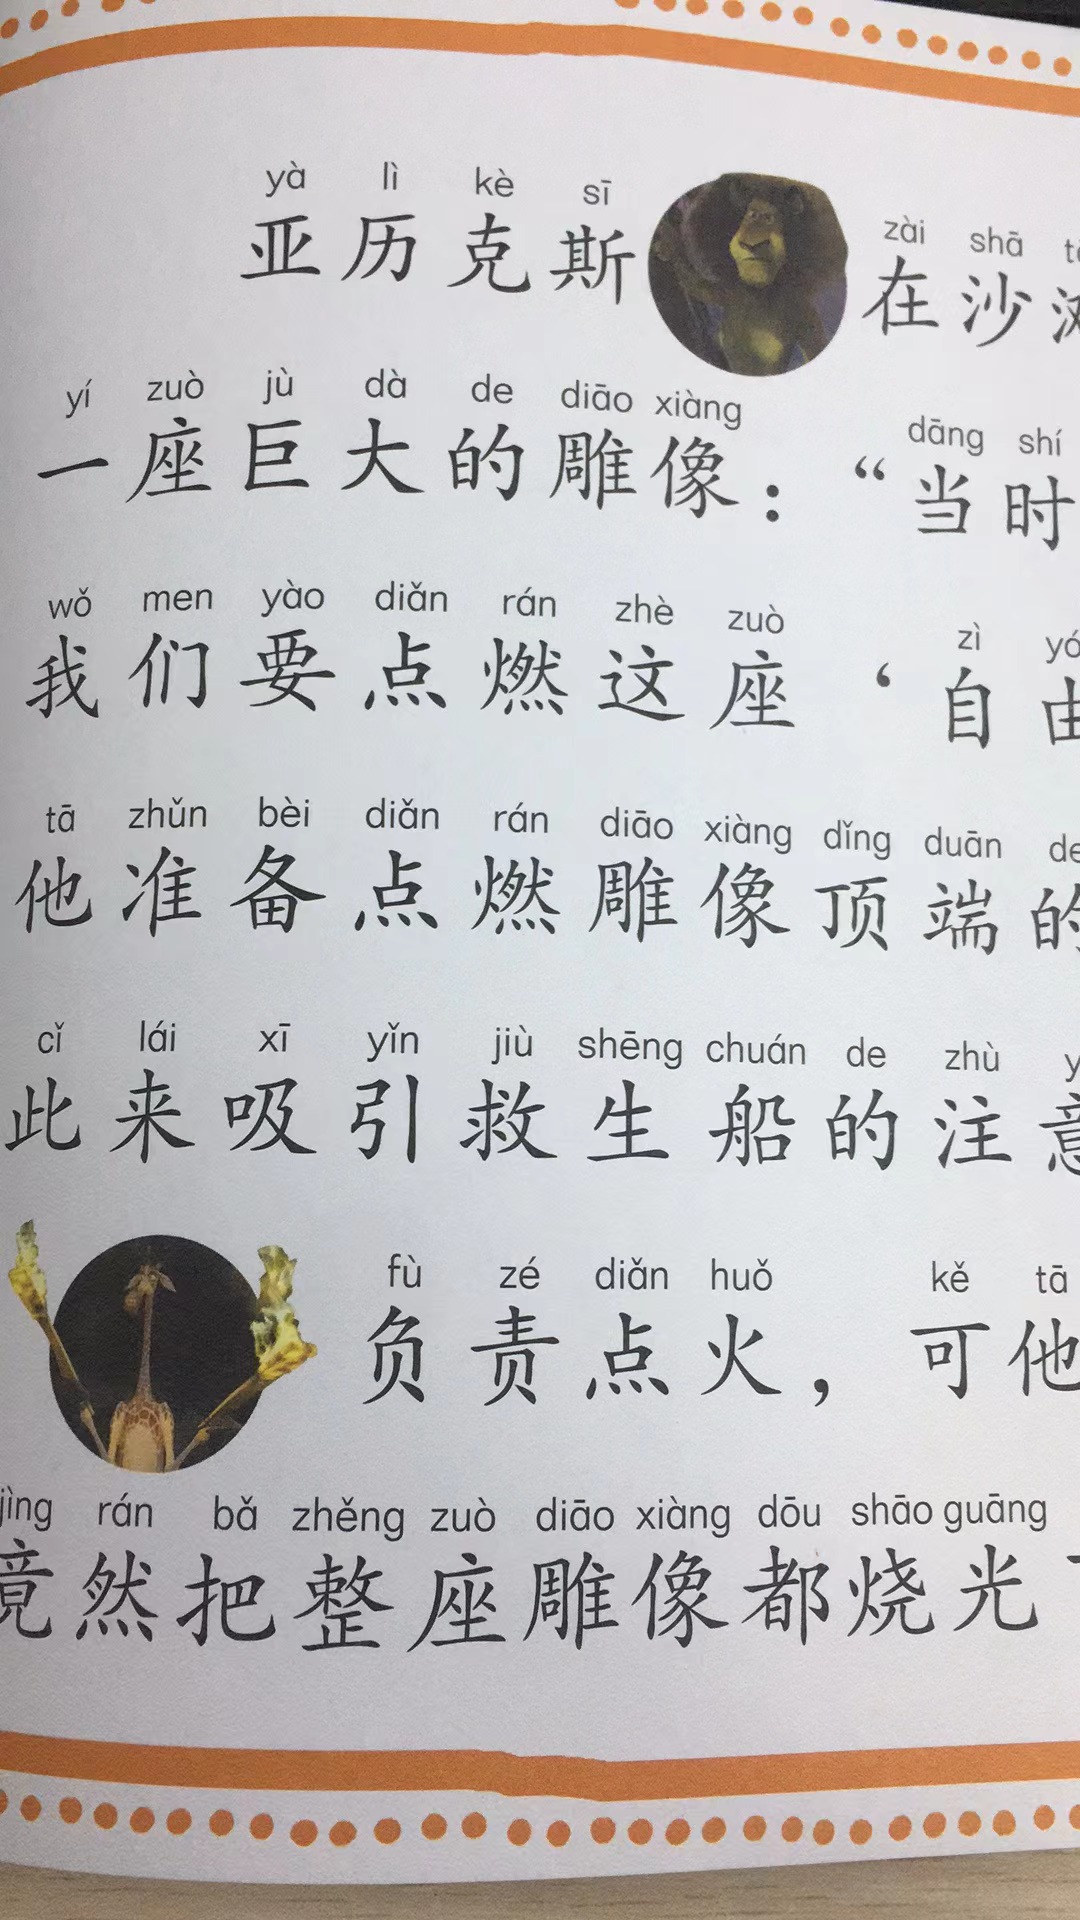 yà lì kè sī zài shā
亚历克斯在沙
yí zuò jù dà de diāo xiàng dāng shí
一座巨大的雕像：“当时
wǒ men yào diǎn rán zhè zuò zì
我们要点燃这座‘自由
tā zhǔn bèi diǎn rán diāo xiàng dǐng duān de
他准备点燃雕像顶端的
cǐ lái xī yǐn jiù shēng chuán de zhù
此来吸引救生船的注意
fù zé diǎn huǒ kě tā
负责点火，可他
jìng rán bǎ zhěng zuò diāo xiàng dōu shāo guāng
竟然把整座雕像都烧光